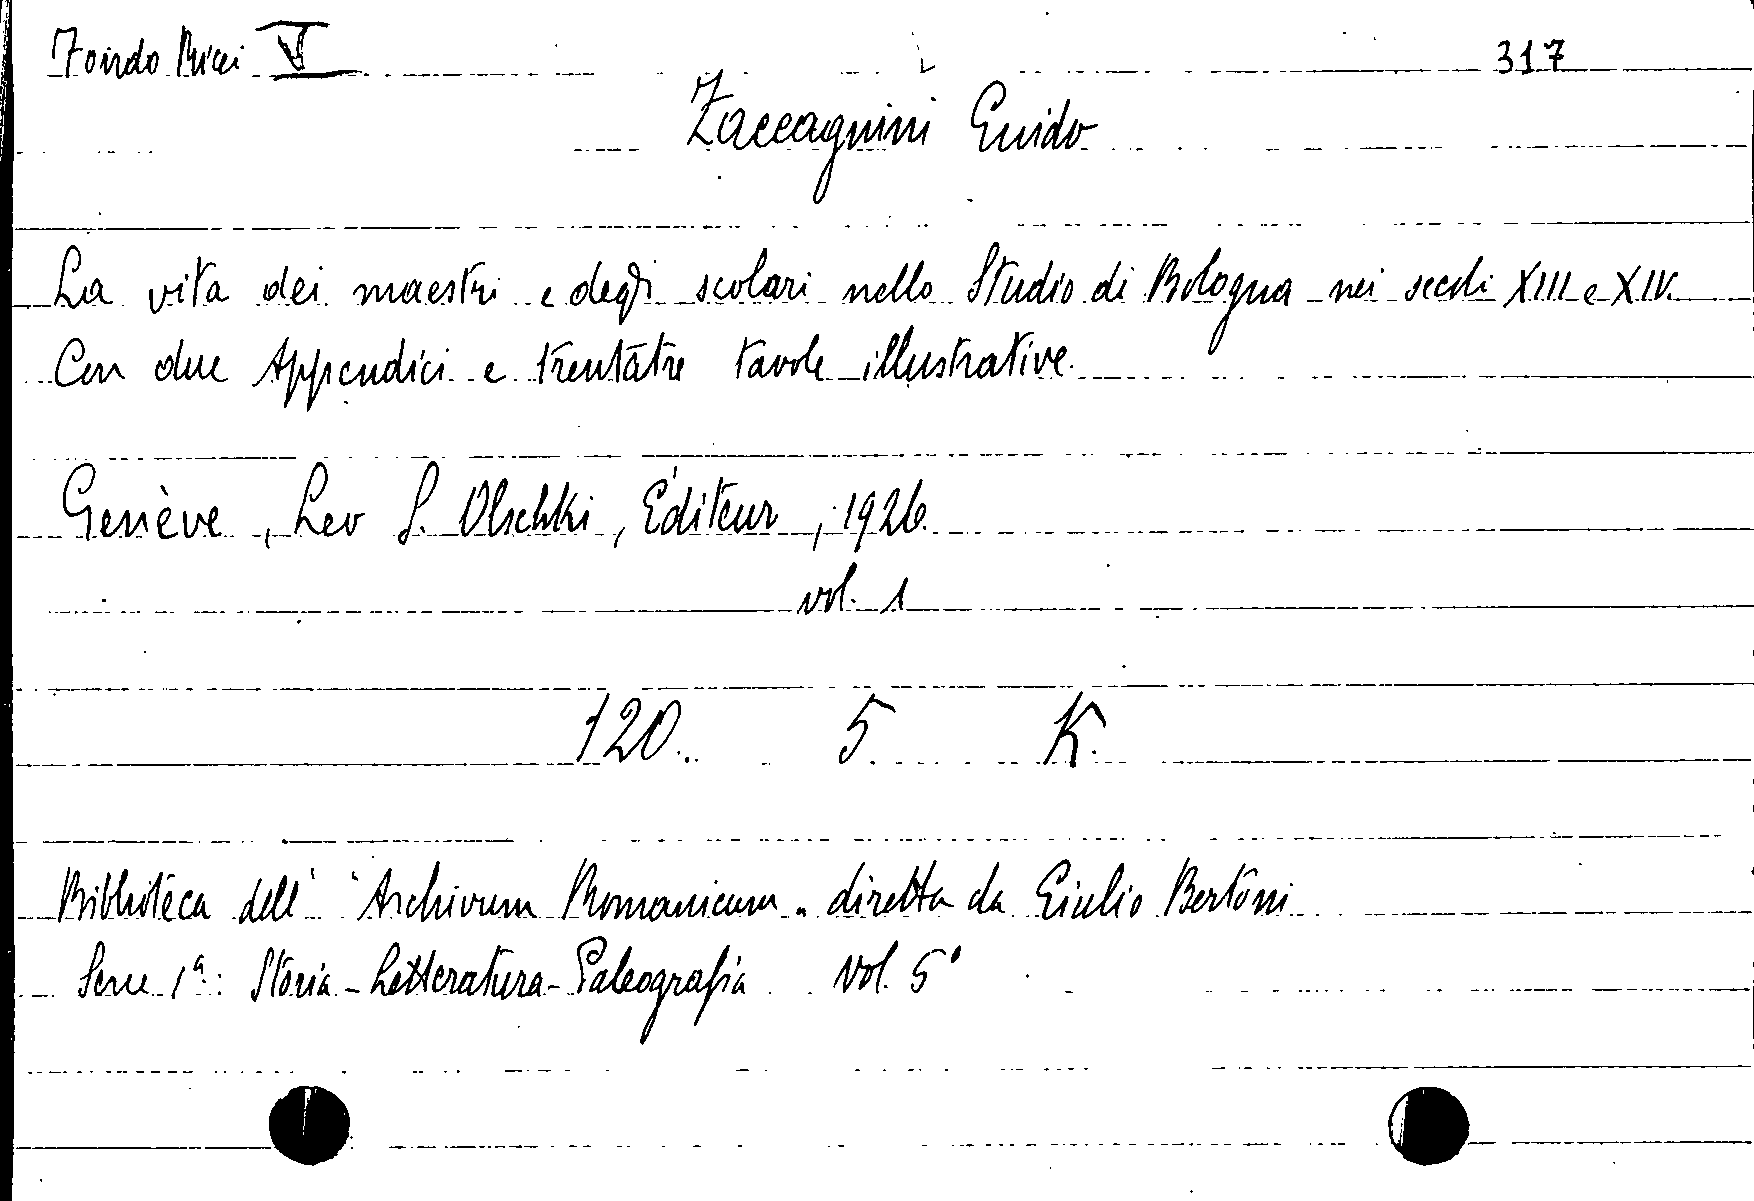 Fondo Ricci V 317
Zaccagnini Guido
La vita dei maestri e degli scolari nello Studio di Bologna nei secoli XIII e XIV.
Con due Appendici e trentatre tavole illustrative.
Genève, Leo S. Olschki, Éditeur, 1926.
vol. 1
120. 5 K.
Biblioteca dell' "Archivum Romanicum" diretta da Giulio Bertoni
Serie 1ª: Storia - Letteratura - Paleografia vol. 5°